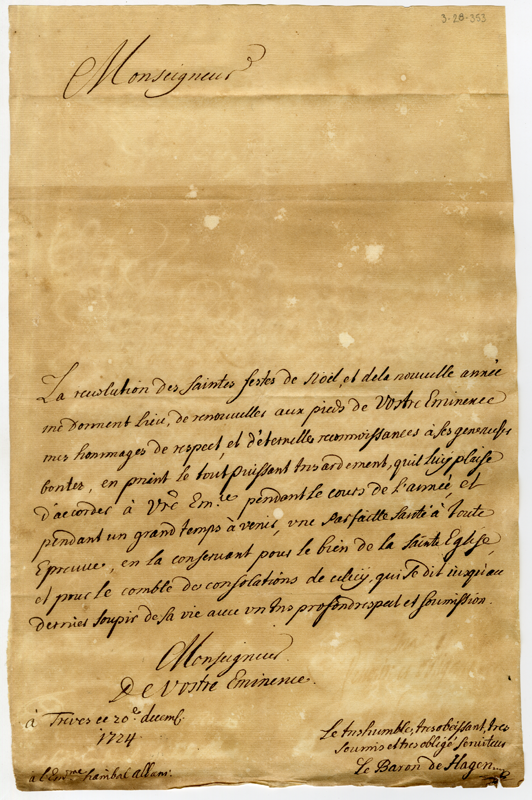 3-28-353
Monseigneur
La revolution des Saintes festes de Noël, et de la nouvelle année
me donnent lieu, de renouveller aux pieds de Vostre Eminence
mes hommages de respect, et d'éternelles reconnoissances à ses genereuses
bontez, en priant le tout puissant tres ardement, qu'il luy plaise
d'accorder à Vrē Em.ce pendant le cours de l'année, et
pendant un grand temps à venir, vne parfaitte santé à toute
Epreuve, en la conservant pour le bien de la Sainte Eglise,
et pour le comble des consolations de celuy, qui se dit jusqu'au
dernier soupir de sa vie avec vn tres profond respect et soumission.
Monseigneur.
De Vostre Eminence.
à Treves ce 20.e decemb.
1724
Le tres humble, tres obeissant, tres
soumis et tres obligé serviteur
Le Baron de Hagen
a l'Em.me Hanibal Albani.